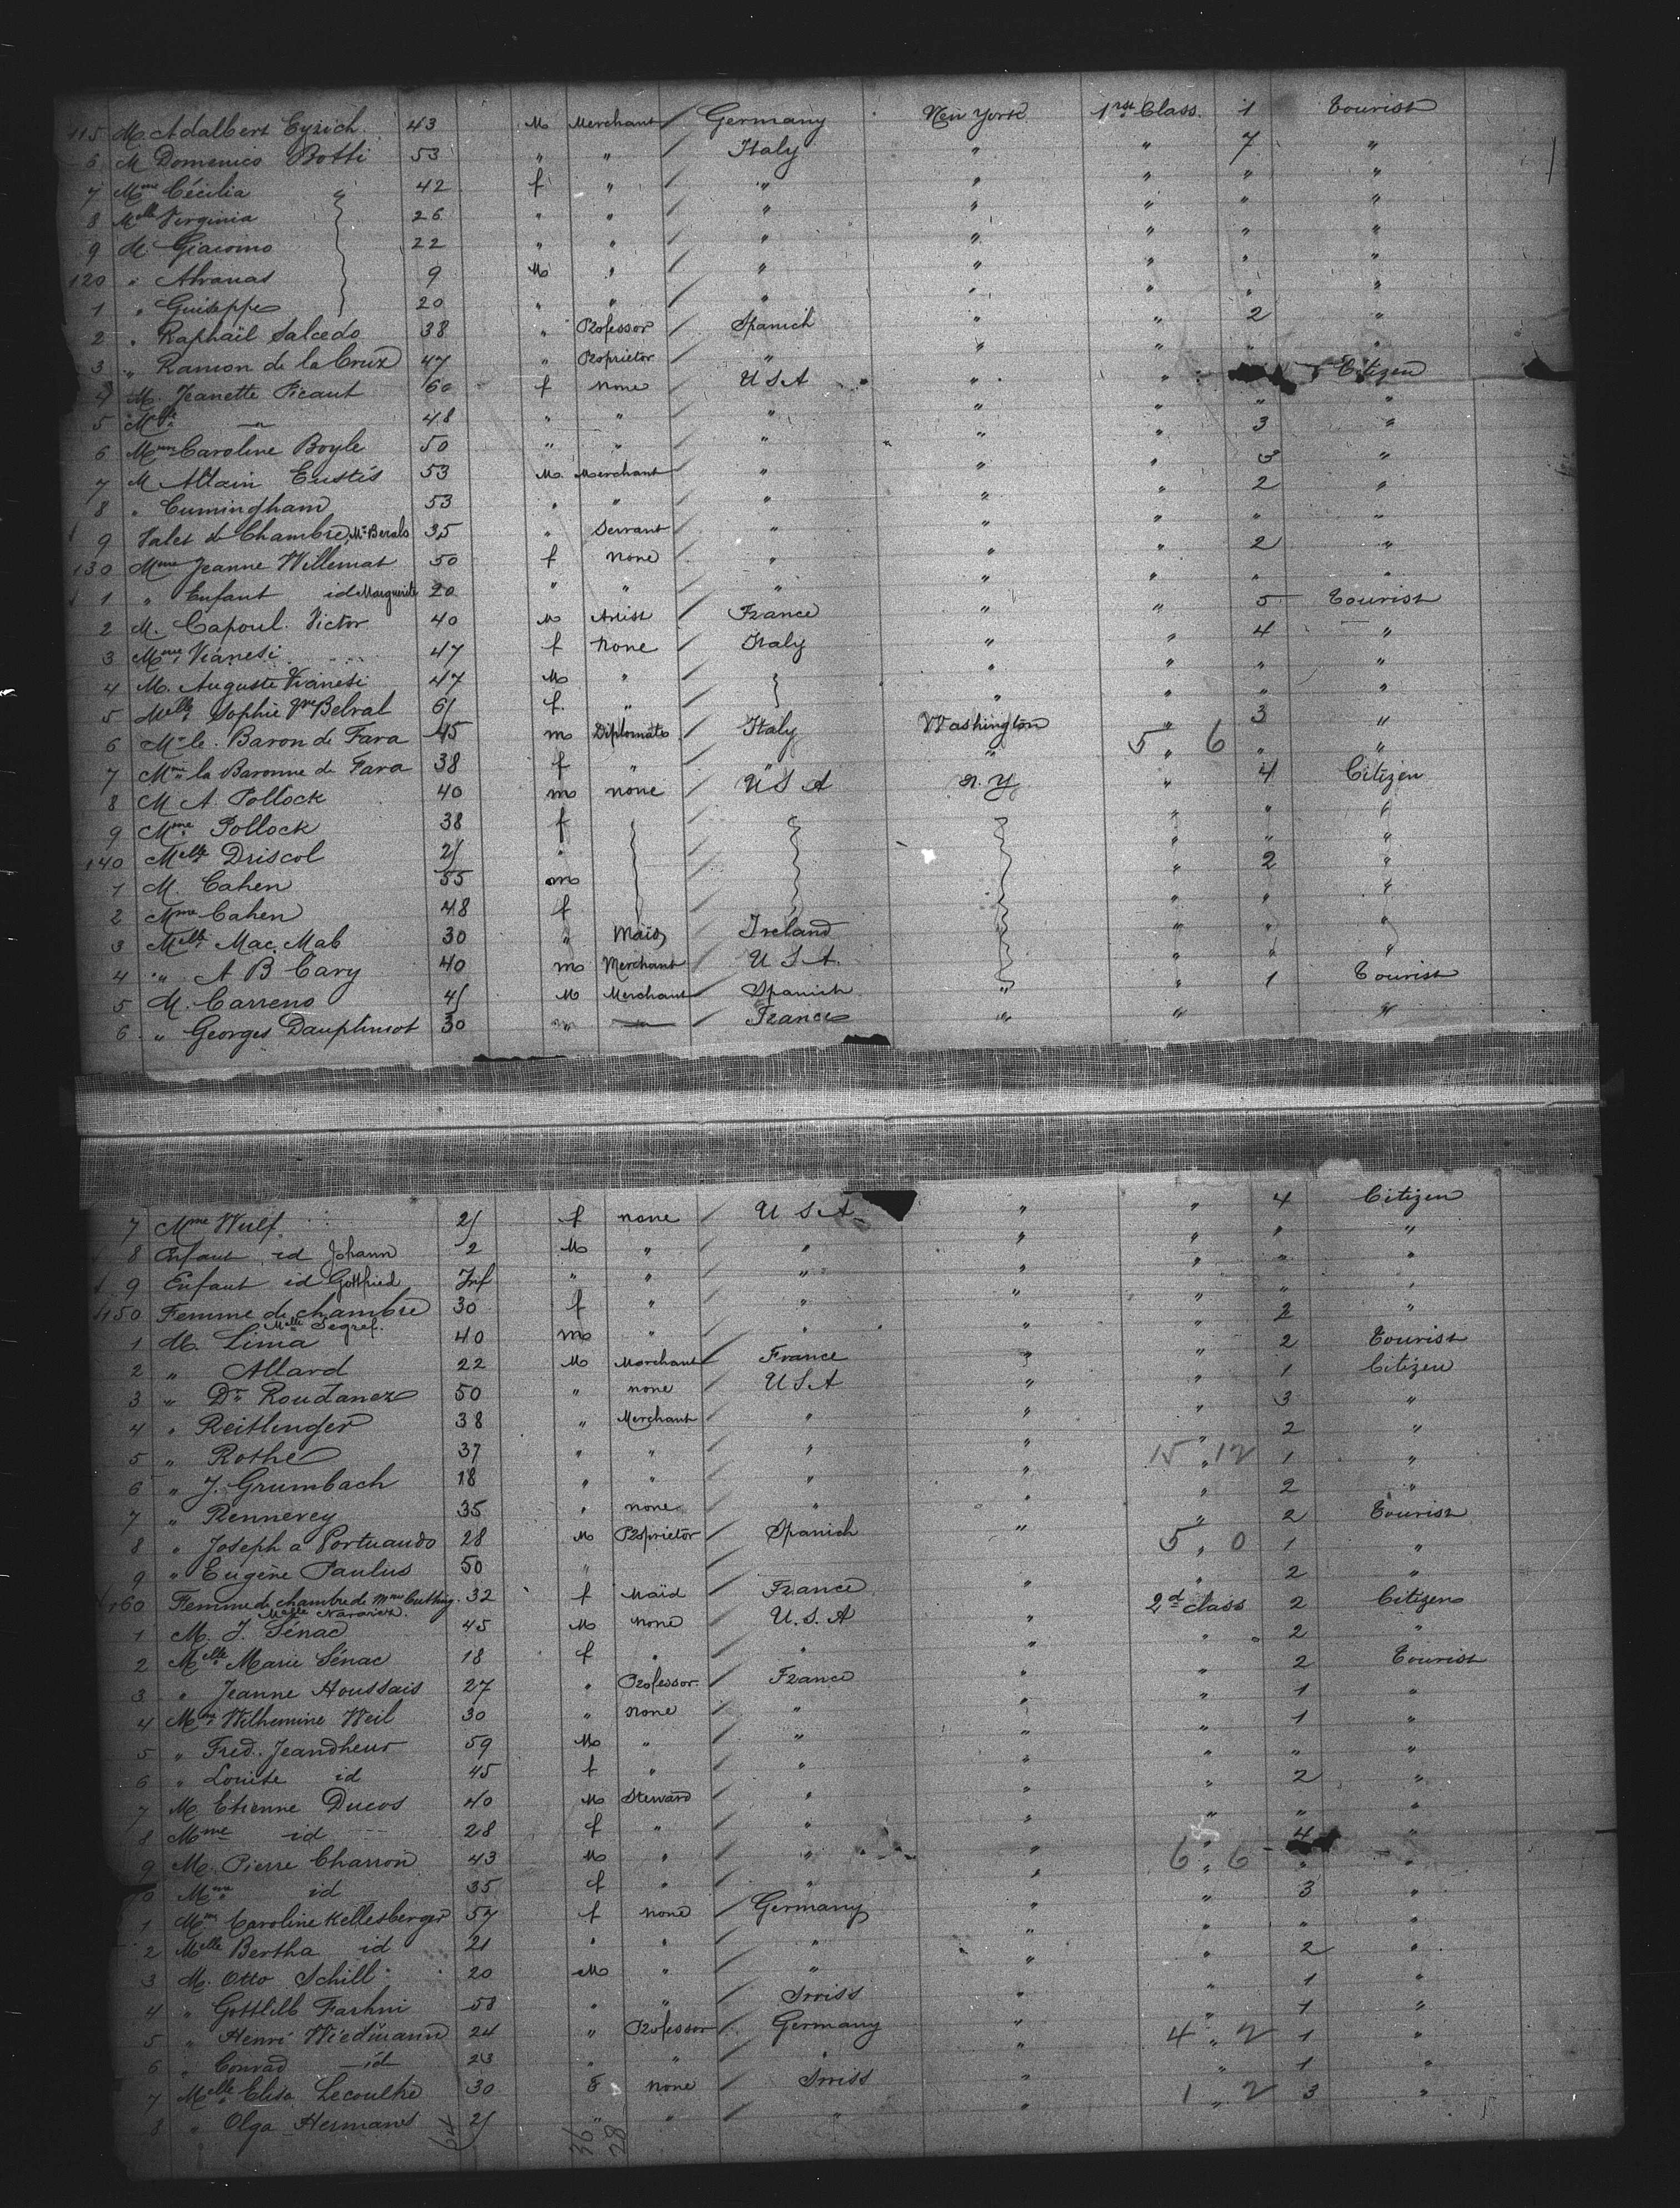 115 M. Adalbert Eyrich 43 M Merchant / Germany New York 1rst Class 1 Tourist
6 M Domenico Botti 53 " " / Italy " " 7 "
7 Mme Cécilia " 42 f " / " " " " "
8 Melle Virginia 26 " " / " " " " "
9 M Giacomo 22 " " / " " " " "
120 " 9 M " / " " " " "
1 " Guiseppe 20 " " / " " " " "
2 " Raphaël Salcedo 38 " Professor / Spanich " " 2 "
3 " Ramon de la Cruz 47 " Proprietor / " " " " "
4 M. Jeanette Picaut 60 f none / U S A " " Citizen
5 Melle " 48 " " / " " " " "
6 Mme Caroline Boyle 50 " " / " " " 3 "
7 M Allain Eustis 53 M Merchant / " " " 3 "
8 " Cumingham 53 " " / " " " 2 "
9 Valet de Chambre, Mr 35 " Servant / " " " " "
130 Mme Jeanne Willemat 50 f none / " " " 2 "
1 " Enfant id Marguerite 20 " " / " " " " "
2 M. Capoul Victor 40 M Artist / France " " 5 Tourist
3 Mme Vianesi 47 f None / Italy " " 4 "
4 M. Auguste Vianesi 47 M " / " " " "
5 Melle Sophie Belval 61 f. " / " " " "
6 Mr le Baron de Fava 45 m Diplomate / Italy Washington " 3 "
7 Mme la Baronne de Fava 38 f " / " " 5 " 6 " "
8 M A Pollock 40 m none / U S A N. Y " 4 Citizen
9 Mme Pollock 38 f / " " "
140 Melle Driscol 21 " / " " "
1 M. Cahen 55 m / " 2 "
2 Mme Cahen 48 f / " " "
3 Melle Mac. Mab 30 " Maid / Ireland " " "
4 " A B Cary 40 m Merchant / U S A. " " "
5 M. Carreno 41 M Merchant / Spanich " " 1 Tourist
6 " Georges Dauphinot 30 " / France " " "
7 Mme Wulf 21 f none / U S A " " 4 Citizen
8 Enfant id Johann 2 M " / " " " " "
9 Enfant id Gottfried Inf " " / " " " " "
150 Femme de chambre 30 f " / " " " " "
Melle Segref.
1 M. Lima 40 m " / " " " 2 "
2 " Allard 22 M Merchant / France " " 2 Tourist
3 " Dr Roudanez 50 " none / U S A " " 1 Citizen
4 " Reitlinger 38 " Merchant / " " " 3 "
5 " Rothe 37 " " / " " " 2 "
6 " J. Grumbach 18 " " / " " 15 " 12 1 "
7 " Rennerey 35 " none / " " " 2 "
8 " Joseph a Portuando 28 M Proprietor / Spanich " " 2 Tourist
9 " Eugène Paulus 50 " / 5 " 0 1 "
160 Femme de chambre de Mme Cutting 32 f Maïd / France " " 2 "
1 M. J. Sénac 45 M none / U. S. A " 2d class 2 Citizen
2 Melle Marie Sénac 18 f " / " " " 2 "
3 " Jeanne Houssais 27 " Professor / France " " 2 Tourist
4 Mme Wilhemine Weil 30 " none / " " " 1 "
5 " Fred. Jeandheur 59 M " / " " " 1 "
6 " Louise id 45 f " / " " " " "
7 M. Etienne Ducos 40 M Steward / " " " 2 "
8 Mme id 28 f " / " " " " "
9 M. Pierre Charron 43 M " / " " " 4 "
0 Mme id 35 f " / " " 6 " 6 " "
1 Mme Caroline Kellesberger 57 f none / Germany " " 3 "
2 Melle Bertha id 21 " " / " " " " "
3 M. Otto Schill 20 M " / " " " 2 "
4 " Gottlieb Farhni 58 " " / Swiss " " 1 "
5 " Henri Wiedmann 24 " Professor / Germany " " 1 "
6 " Conrad id 23 " " / " " 4 " 2 1 "
7 Melle Elisa Lecoultre 30 f none / Swiss " " 1 "
8 " Olga Hermans 21 " " / " " 1 " 2 3 "
64 36 28